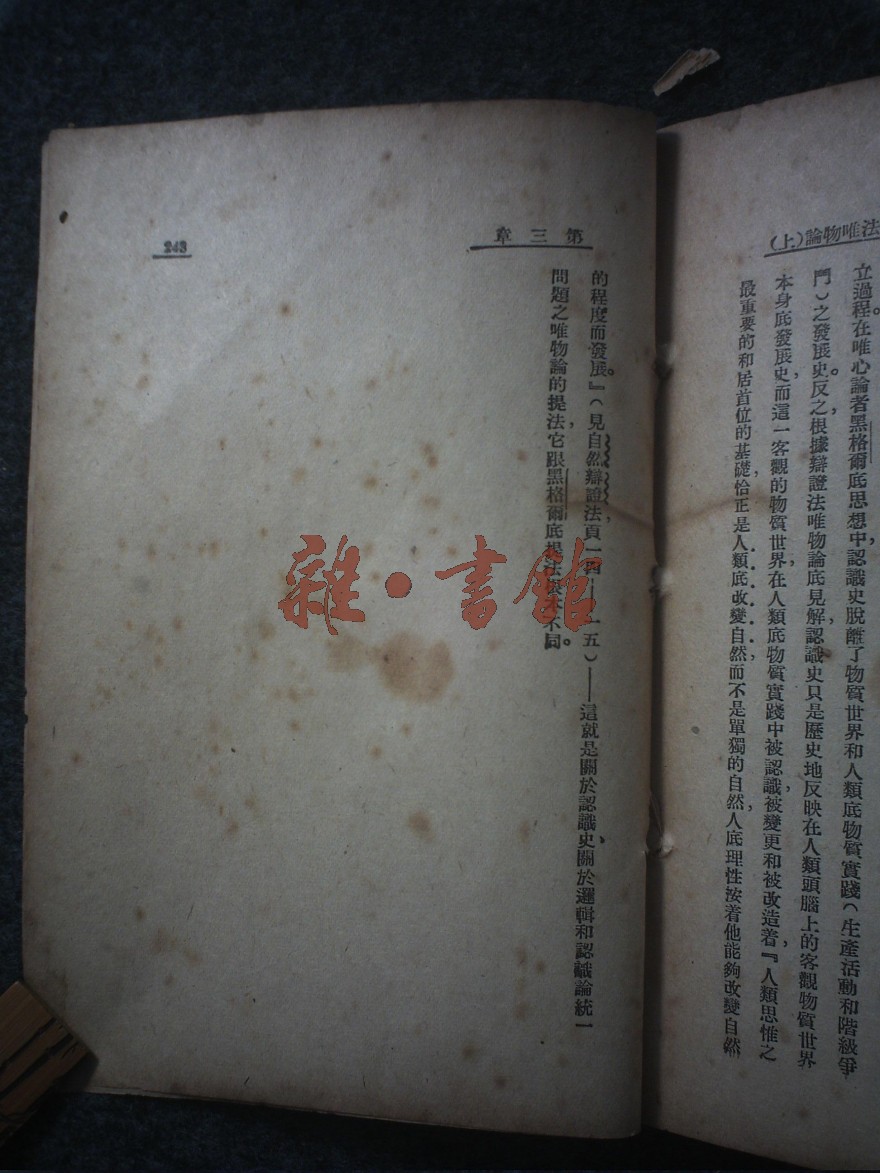 法唯物論(上)
立過程。在唯心論者黑格爾底思想中,認識史脫離了物質世界和人類底物質實踐(生產活動和階級爭
門)之發展史。反之,根據辯證法唯物論底見解,認識史只是歷史地反映在人類頭腦上的客觀物質世界
本身底發展史,而這一客觀的物質世界,在人類底物質實踐中被認識,被變更和被改造着,『人類思惟之
最重要的和居首位的基礎,恰正是人類底改變自然,而不是單獨的自然,人底理性按着他能夠改變自然
第三章
243
的程度而發展。』(見自然辯證法,頁一四——一五)——這就是關於認識史、關於邏輯和認識論統一
問題之唯物論的提法,它跟黑格爾底提法根本不同。
雜·書館